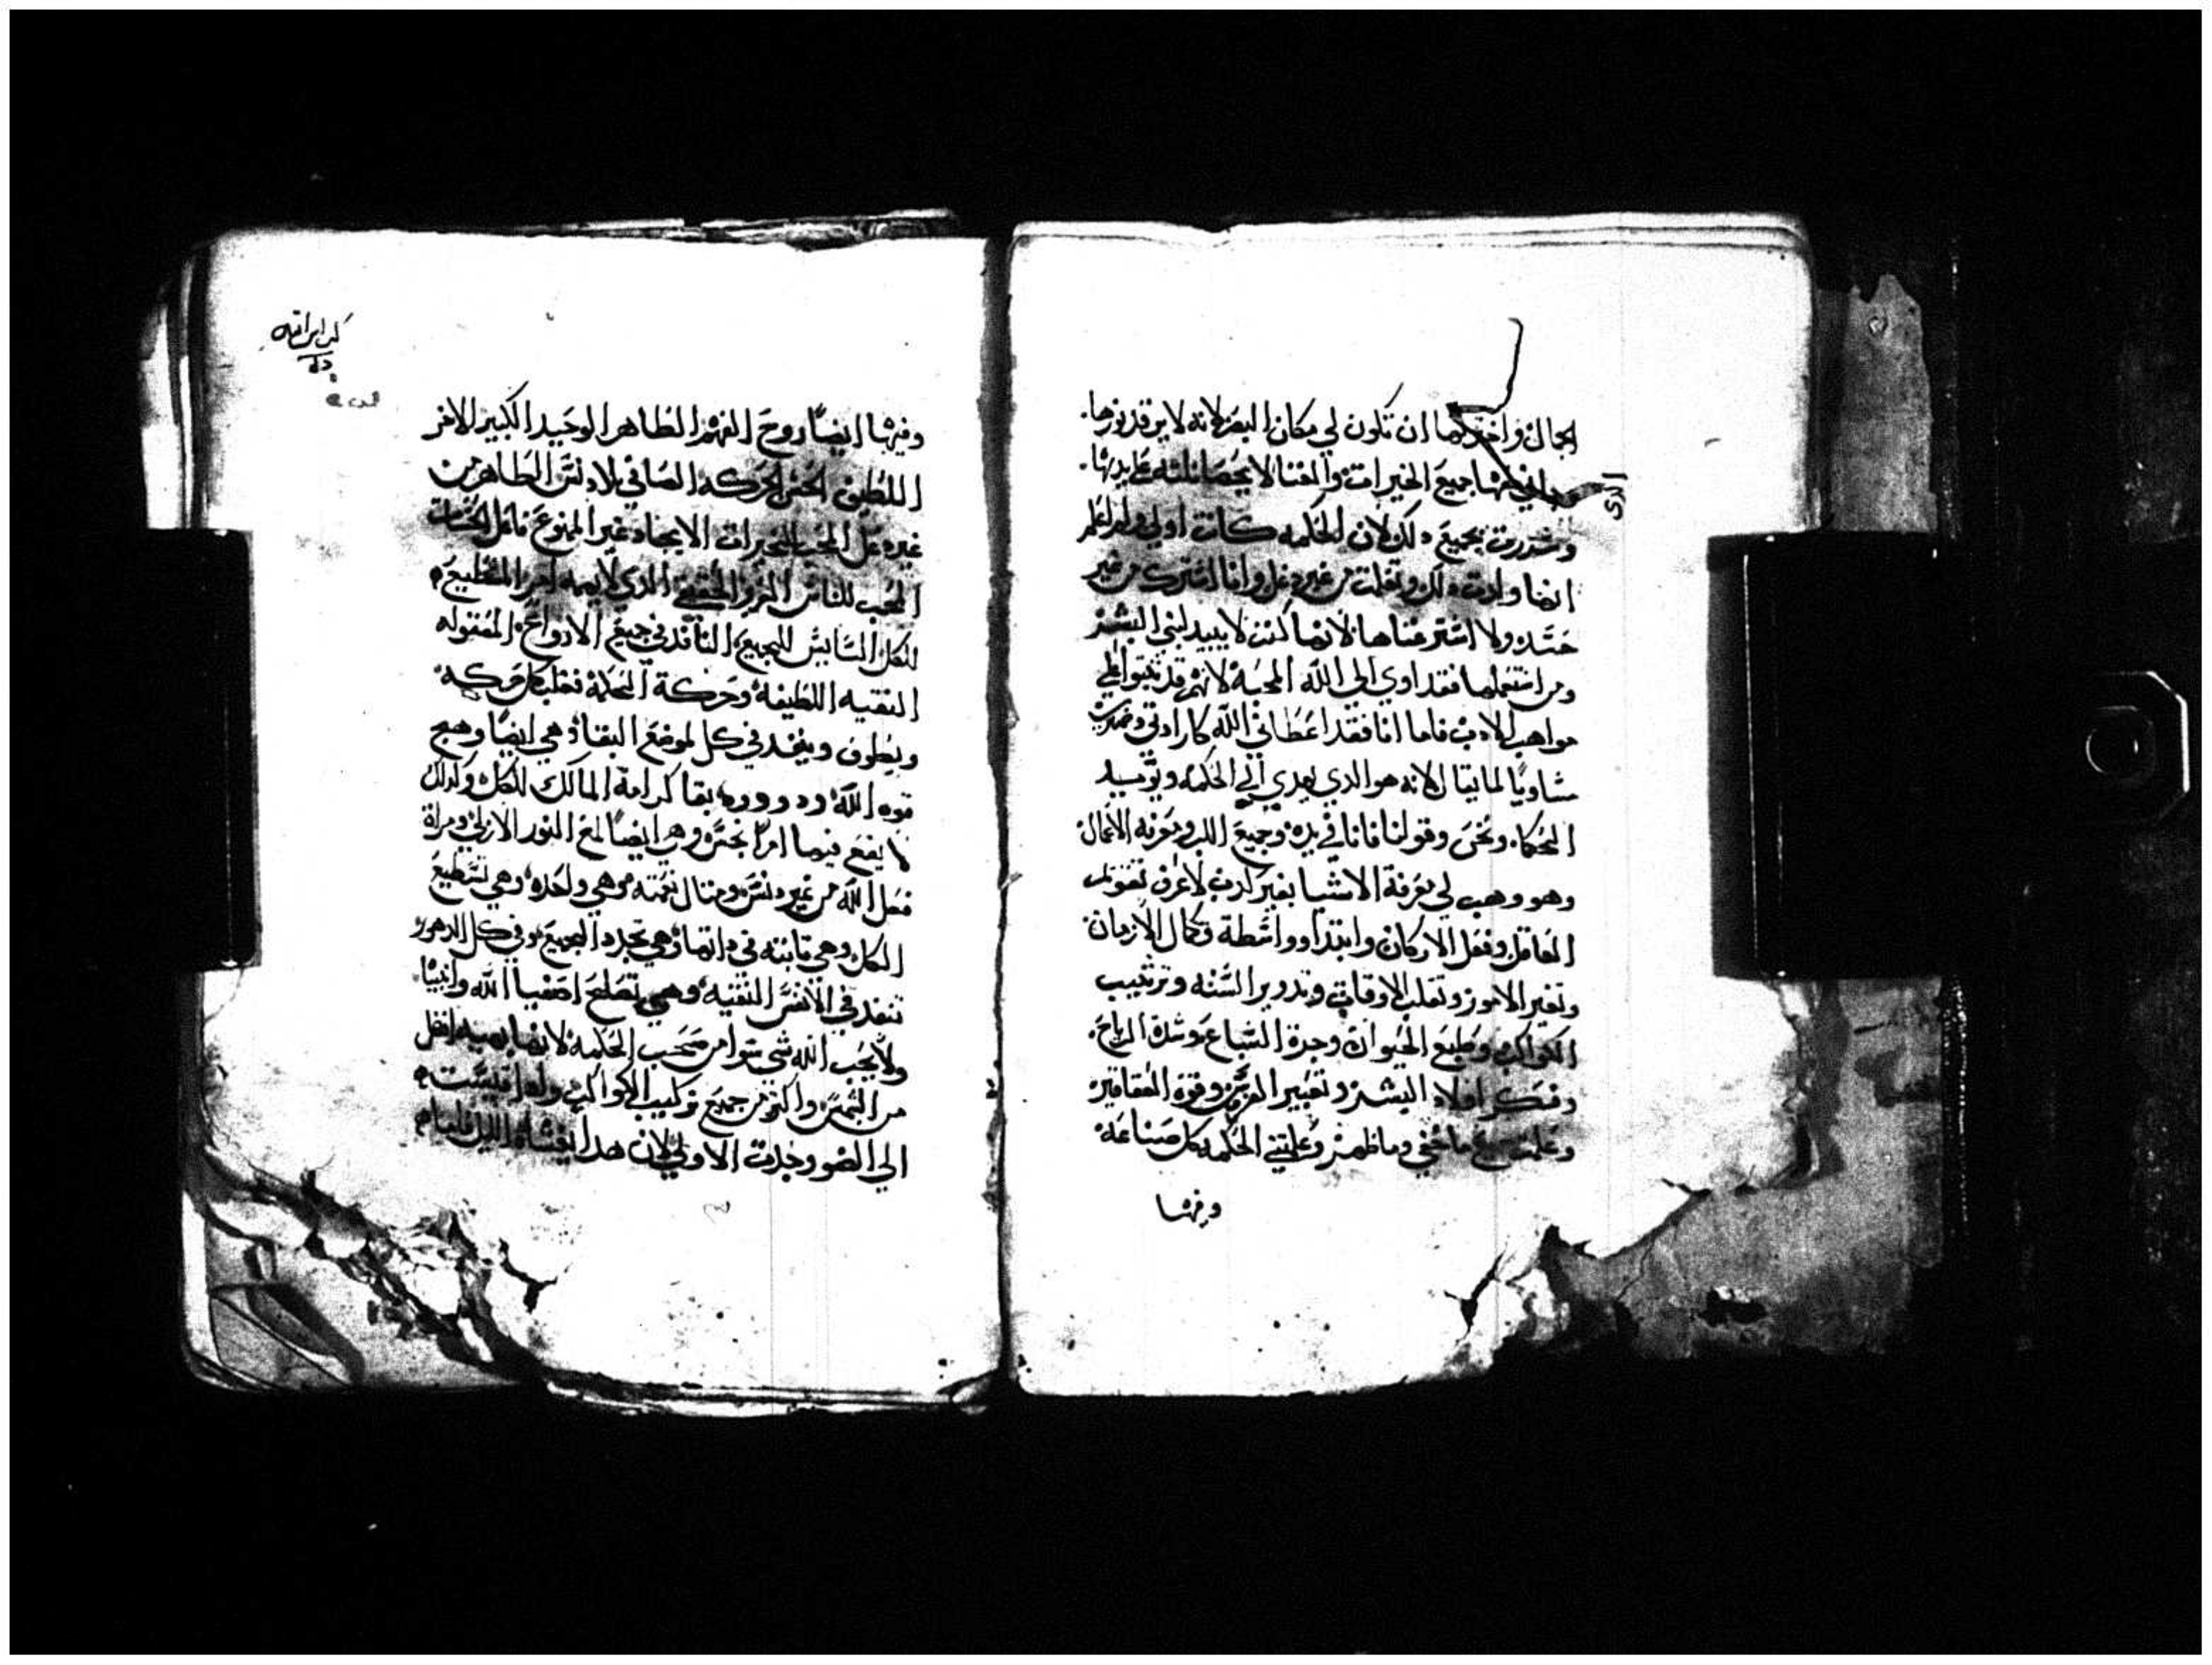 الجمال واخترتها ان تكون لي مكان البصر لانه لا يرقد نورها.
واتي منها جميع الخيرات والغنا لا يحصا نلته على يديها.
الدي
وسررت بجميع دلك لان الحكمه كانت اولي ولم اعلم
انها ولدت دلك وتعلمت من غير دغل وانا اشترك من غير
حسد ولا استر غناها لانها كنز لا يبيد لبني البشر
ومن استعملها فقد اوي الي الله المحبه لانهم قد تبتوا الي
مواهب الادب فاما انا فقد اعطاني الله كارادتي وصرت
مساويًا لما يقال لانه هو الدي يهدي الي الحكمه ويويد
الحكما ونحن وقولنا فاننا في يده وجميع اللب ومعرفه الاعمال
وهو وهب لي معرفة الاشيا بغير كدب لاعرف تقويم
العالم وفعل الاركان وابتدا وواسطة وكمال الازمان
وتغير الامور وتقلب الاوقات وتدوير السنه وترتيب
الكواكب وطبع الحيوان وحدة السباع وشدة الرياح.
وفكر اولاد البشر وتغيير الغرس وقوة العقاقير
وعلمت جميع ما خفي وما ظهر وعلمتني الحكمه كل صناعه
وفيها
وفيها ايضًا روح الفهم الطاهر الوحيد الكبير الاخر
اللطيف الحسن الحركه الصافي بلا دنس الطاهر من
غير دغل المحب للخيرات الابجاد غير الممنوع فاعل الحسنات
المحب للناس العزيز الحقيقي الدي لا يهمه امر المستطيع
للكل السايس للجميع النافد في جميع الارواح المقبوله
النقيه اللطيفه وحركة الحكمة تغلب كل حركه
ويطوف وينفد في كل لموضع البقا وهي ايضًا وهج
قوه الله ودوروره بقا كرامة المالك للكل ولدلك
لا يقع فيها امرًا نجس وهي ايضًا لمع النور الازلي ومراة
فعل الله من غير دنس ومتال نعمته وهي واحده وهي تستطيع
الكل وهي تابته في داتها وهي تجدد الجميع وفي كل الدهور
تنفد في الانفس النقيه وهي تصلح اصفيا الله وانبيا
ولا يحب الله شي سوا من صحب الحكمه لانها بهيه افضل
من الشمس واكتر من جميع تركيب الكواكب وادا قيست
الي الضو وجدت الاولي لان هدا يغشاه الليل فاما